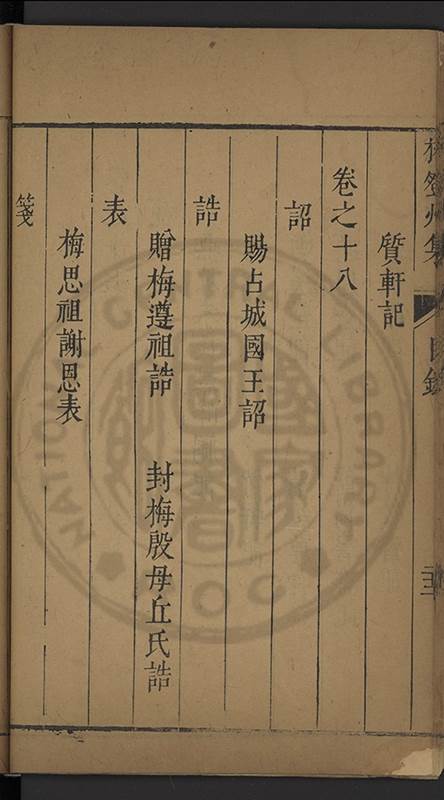 質軒記
卷之十八
詔
賜占城國王詔
誥
贈梅遵祖誥 封梅殷母丘氏誥
表
梅思祖謝恩表
箋